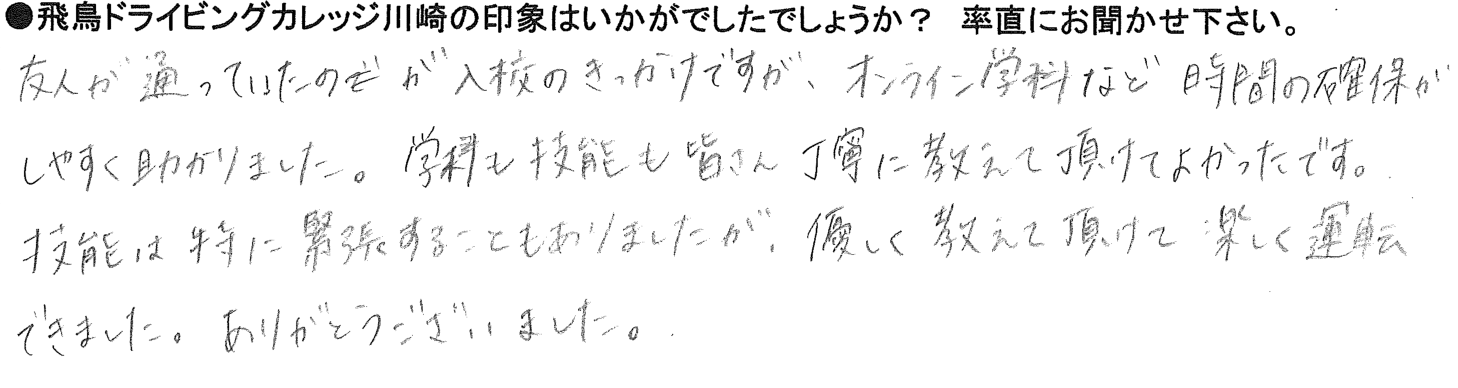 ●飛鳥ドライビングカレッジ川崎の印象はいかがでしたでしょうか？ 率直にお聞かせ下さい。
友人が通っていたのがが入校のきっかけですが、オンライン学科など時間の確保が
しやすく助かりました。学科も技能も皆さん丁寧に教えて頂けてよかったです。
技能は特に緊張することもありましたが、優しく教えて頂けて楽しく運転
できました。ありがとうございました。